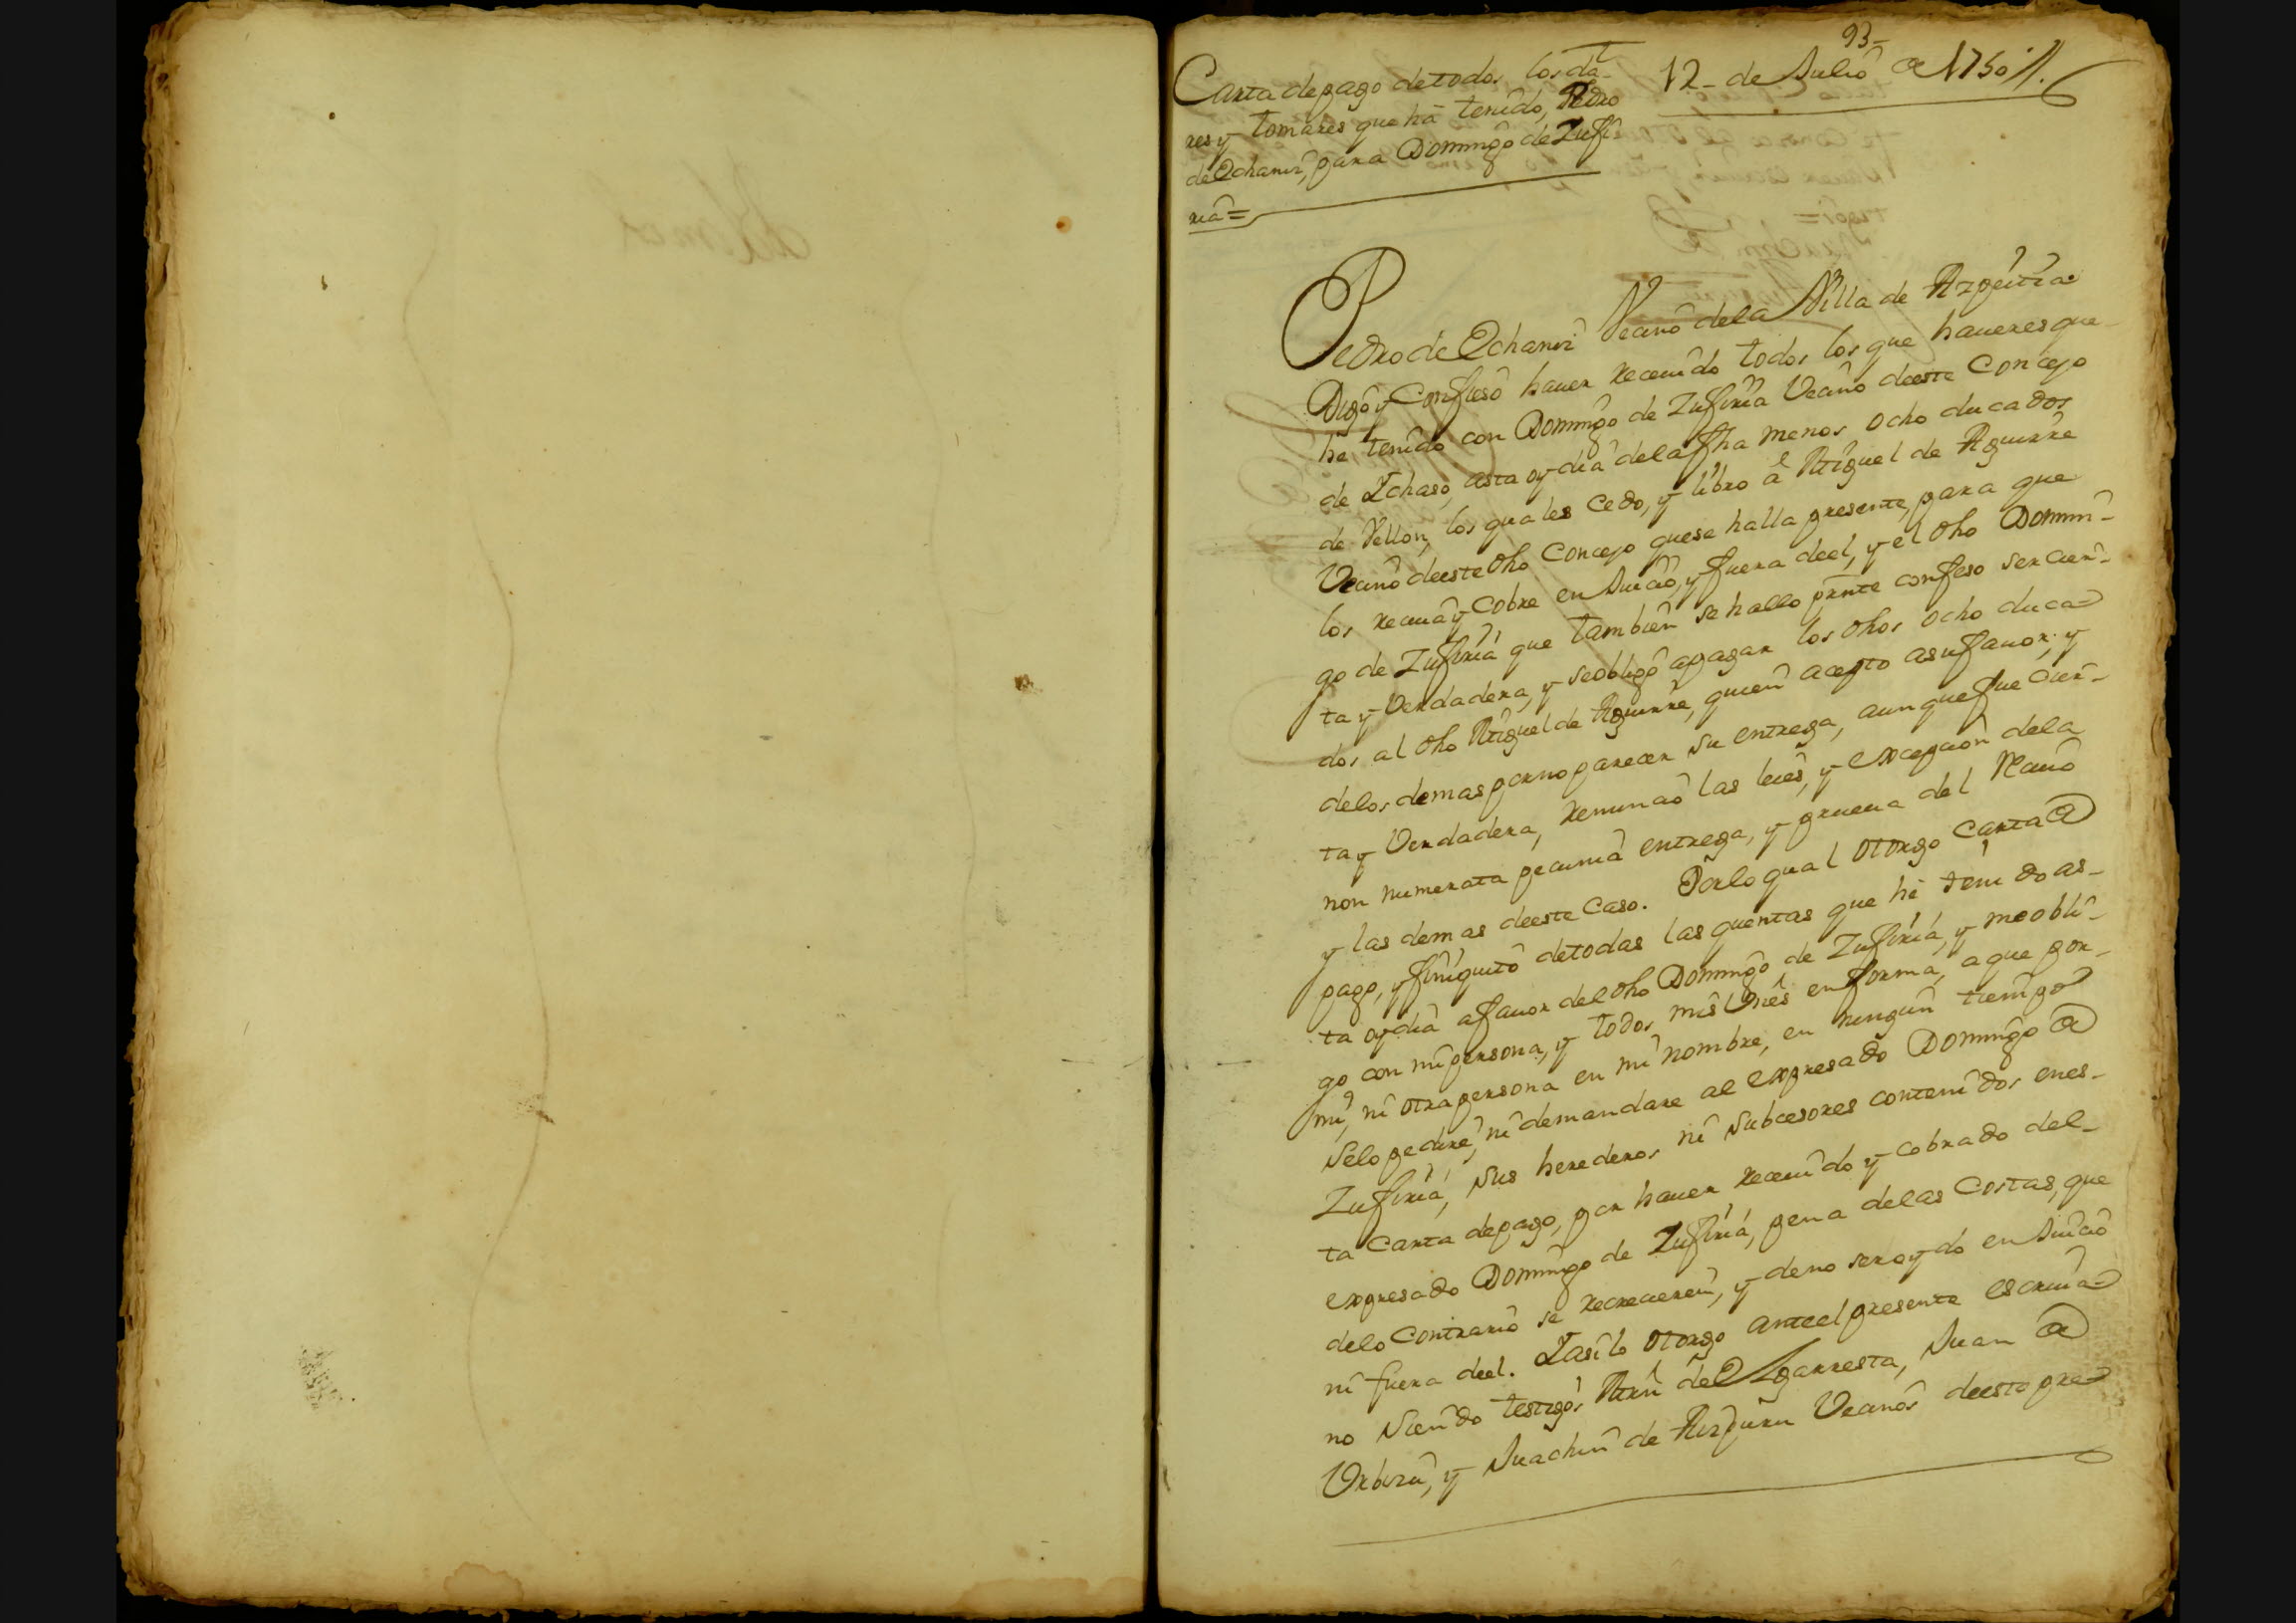 93-
12- de Julio de 1750//.
Carta de pago de todos los da-
res y tomares que ha tenido, Pedro
de Ochaniz, para Domingo de Zufi
ria=
Pedro de Ochaniz Vecino dela Villa de Azpeitia
Digo y Confieso hauer receuido todos los que haueres que
he tenido con Domingo de Zufiria Vecino deeste Concejo
de Ychaso, asta oy dia dela fha menos ocho ducados
de Vellon, los quales Cedo, y libro â Miguel de Aguirre
Vecino deeste dho Concejo quese halla presente, para que
los reciua y Cobre en Juicio, y fuera deel, y el dho Domin-
go de Zufiria que tambien se hallo presnte confeso ser cier-
ta y Verdadera, y seobligo apagar los dhos ocho duca=
dos al dho Miguel de Aguirre, quien acepto asufauor; y
delos demas porno parecer su entrega, aunquefue cier-
ta y Verdadera, renuncio las leies, y excepcion dela
non numerata pecunia entrega, y prueua del Reciuo
y las demas deeste Caso. Porlo qual otorgo Carta de
pago, y finiquito detodas las quentas que hê tenido as-
ta oy dia afauor del dho Domingo de Zufiria, y meobli-
go con mi persona, y todos mis Vnes en forma, a que por-
mi, ni otra persona en mi nombre, en ningun tiempo
selo pedire, ni demandare al expresado Domingo de
Zufiria, sus herederos ni subcesores contenidos enes-
ta Carta depago, por hauer receuido y cobrado del-
expresado Domingo de Zufiria, pena delas Costas, que
delo Contrario se recrecieren, y deno seroydo en Juicio
ni fuera deel. Yasilo otorgo anteel presente escriua=
no siendo testigos Mrn de Ygarresta, Juan de
Vrbizu, y Juachin de Aizpuru Vecinos deeste pre=